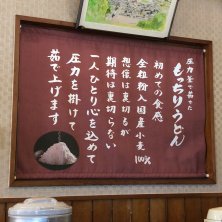 圧力釜で茹でた
もっちりうどん
初めての食感
全粒粉入国産小麦100%
想像は裏切るが
期待は裏切らない
一人ひとり心を込めて
圧力を掛けて
茹で上げます